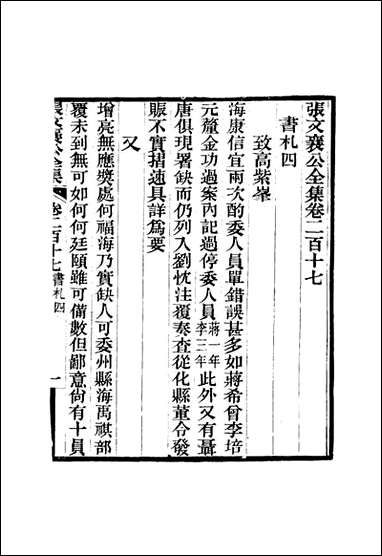 張文襄公全集卷二百十七
書札四
致高紫峯
海康信宜兩次酌委人員單錯誤甚多如蔣希曾李培
元釐金功過案內記過停委人員蔣一年李三年此外又有聶
唐俱現署缺而仍列入劉忱注覆奏查從化縣董令發
賑不實掯速具詳爲要
又
增亮無應奬處何福海乃實缺人可委州縣海禹祺部
覆未到無可如何何廷頤雖可備數但鄙意尚有十員
張文襄公全集
卷二百十七 書札四
一